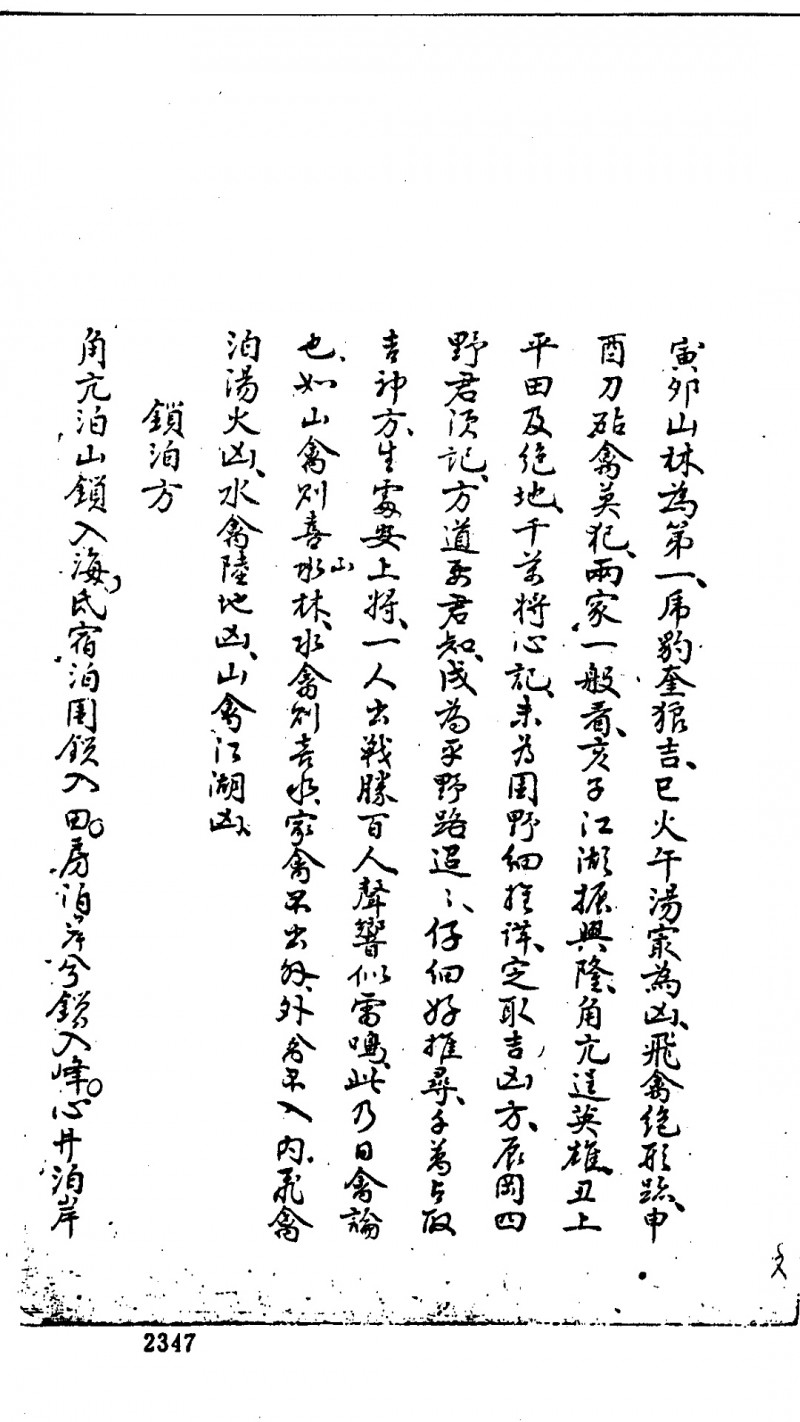 寅夘山林為第一、虎豹奎狼吉、巳火午湯最為凶、飛禽絕形跡、申
酉刀砧禽莫犯、兩家一般看、亥子江湖振興隆、角亢逞英雄、丑上
平田及絕地、千萬將心記、未為園野細推詳、定取吉凶方、辰岡四
野君須記、方道要君知、戌為平野路迢々、仔細好推尋、千萬占取
吉神方、生處安上將、一人出戰勝百人、聲響似雷鳴、此乃日禽論
也、如山禽則喜山林、水禽則喜水、家禽不出外、外禽不入內、飛禽
泊湯火凶、水禽陸地凶、山禽江湖凶、
鎖泊方
角亢泊山鎖入海、氐宿泊園鎖入田。房泊岸兮鎖入峰。心井泊岸
2347